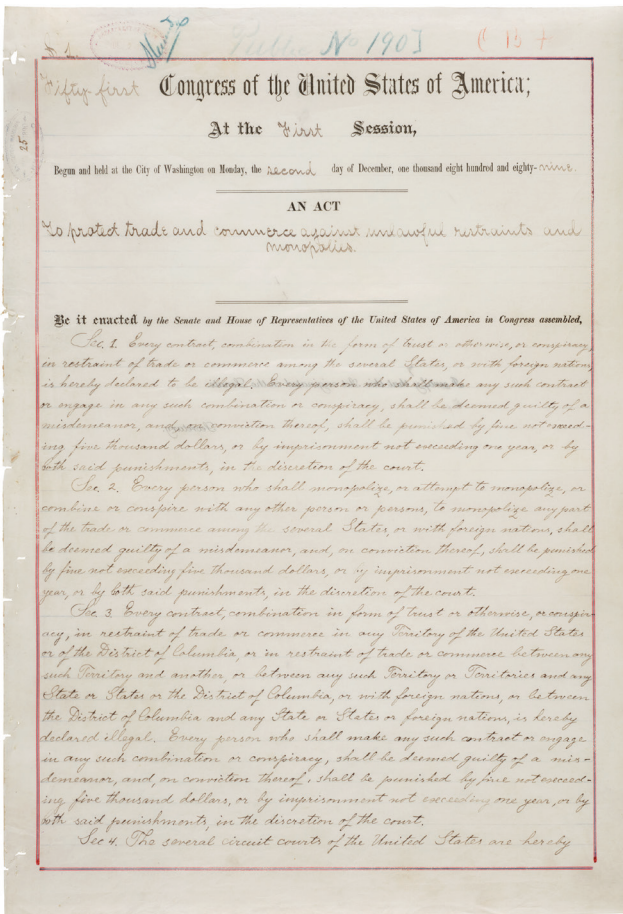 Public No 190]
( 15 +
Fifty-first Congress of the United States of America;
At the First Session,
Begun and held at the City of Washington on Monday, the second day of December, one thousand eight hundred and eighty-nine.
AN ACT
To protect trade and commerce against unlawful restraints and
monopolies.
Be it enacted by the Senate and House of Representatives of the United States of America in Congress assembled,
Sec. 1. Every contract, combination in the form of trust or otherwise, or conspiracy,
in restraint of trade or commerce among the several States, or with foreign nations,
is hereby declared to be illegal. Every person who shall make any such contract
or engage in any such combination or conspiracy, shall be deemed guilty of a
misdemeanor, and, on conviction thereof, shall be punished by fine not exceed-
ing five thousand dollars, or by imprisonment not exceeding one year, or by
both said punishments, in the discretion of the court.
Sec. 2. Every person who shall monopolize, or attempt to monopolize, or
combine or conspire with any other person or persons, to monopolize any part
of the trade or commerce among the several States, or with foreign nations, shall
be deemed guilty of a misdemeanor, and, on conviction thereof, shall be punished
by fine not exceeding five thousand dollars, or by imprisonment not exceeding one
year, or by both said punishments, in the discretion of the court.
Sec. 3. Every contract, combination in form of trust or otherwise, or conspir-
acy, in restraint of trade or commerce in any Territory of the United States
or of the District of Columbia, or in restraint of trade or commerce between any
such Territory and another, or between any such Territory or Territories and any
State or States or the District of Columbia, or with foreign nations, or between
the District of Columbia and any State or States or foreign nations, is hereby
declared illegal. Every person who shall make any such contract or engage
in any such combination or conspiracy, shall be deemed guilty of a mis-
demeanor, and, on conviction thereof, shall be punished by fine not exceed-
ing five thousand dollars, or by imprisonment not exceeding one year, or by
both said punishments, in the discretion of the court.
Sec. 4. The several circuit courts of the United States are hereby
25